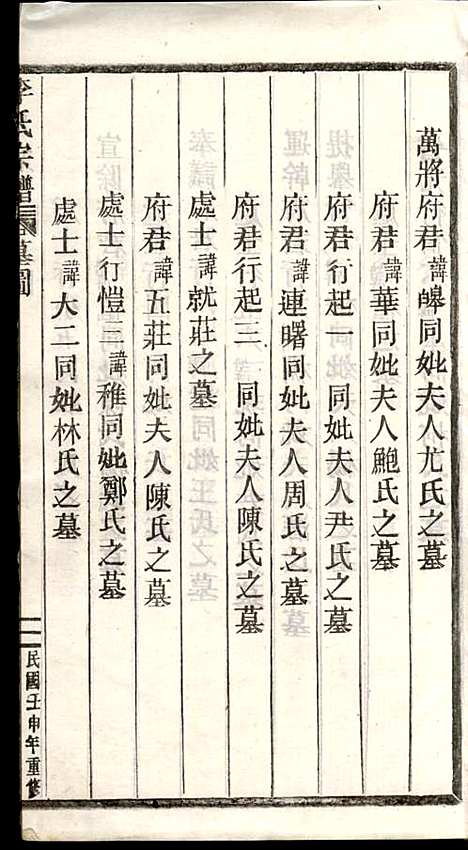 萬將府君諱皥同妣夫人尤氏之墓
府君諱華同妣夫人鮑氏之墓
府君行起一同妣夫人尹氏之墓
府君諱連曙同妣夫人周氏之墓
府君行起三同妣夫人陳氏之墓
處士諱就莊之墓
府君諱五莊同妣夫人陳氏之墓
處士行愷三諱稚同妣鄭氏之墓
處士諱大二同妣林氏之墓
李氏宗譜 墓圖 二 民國壬申年重修